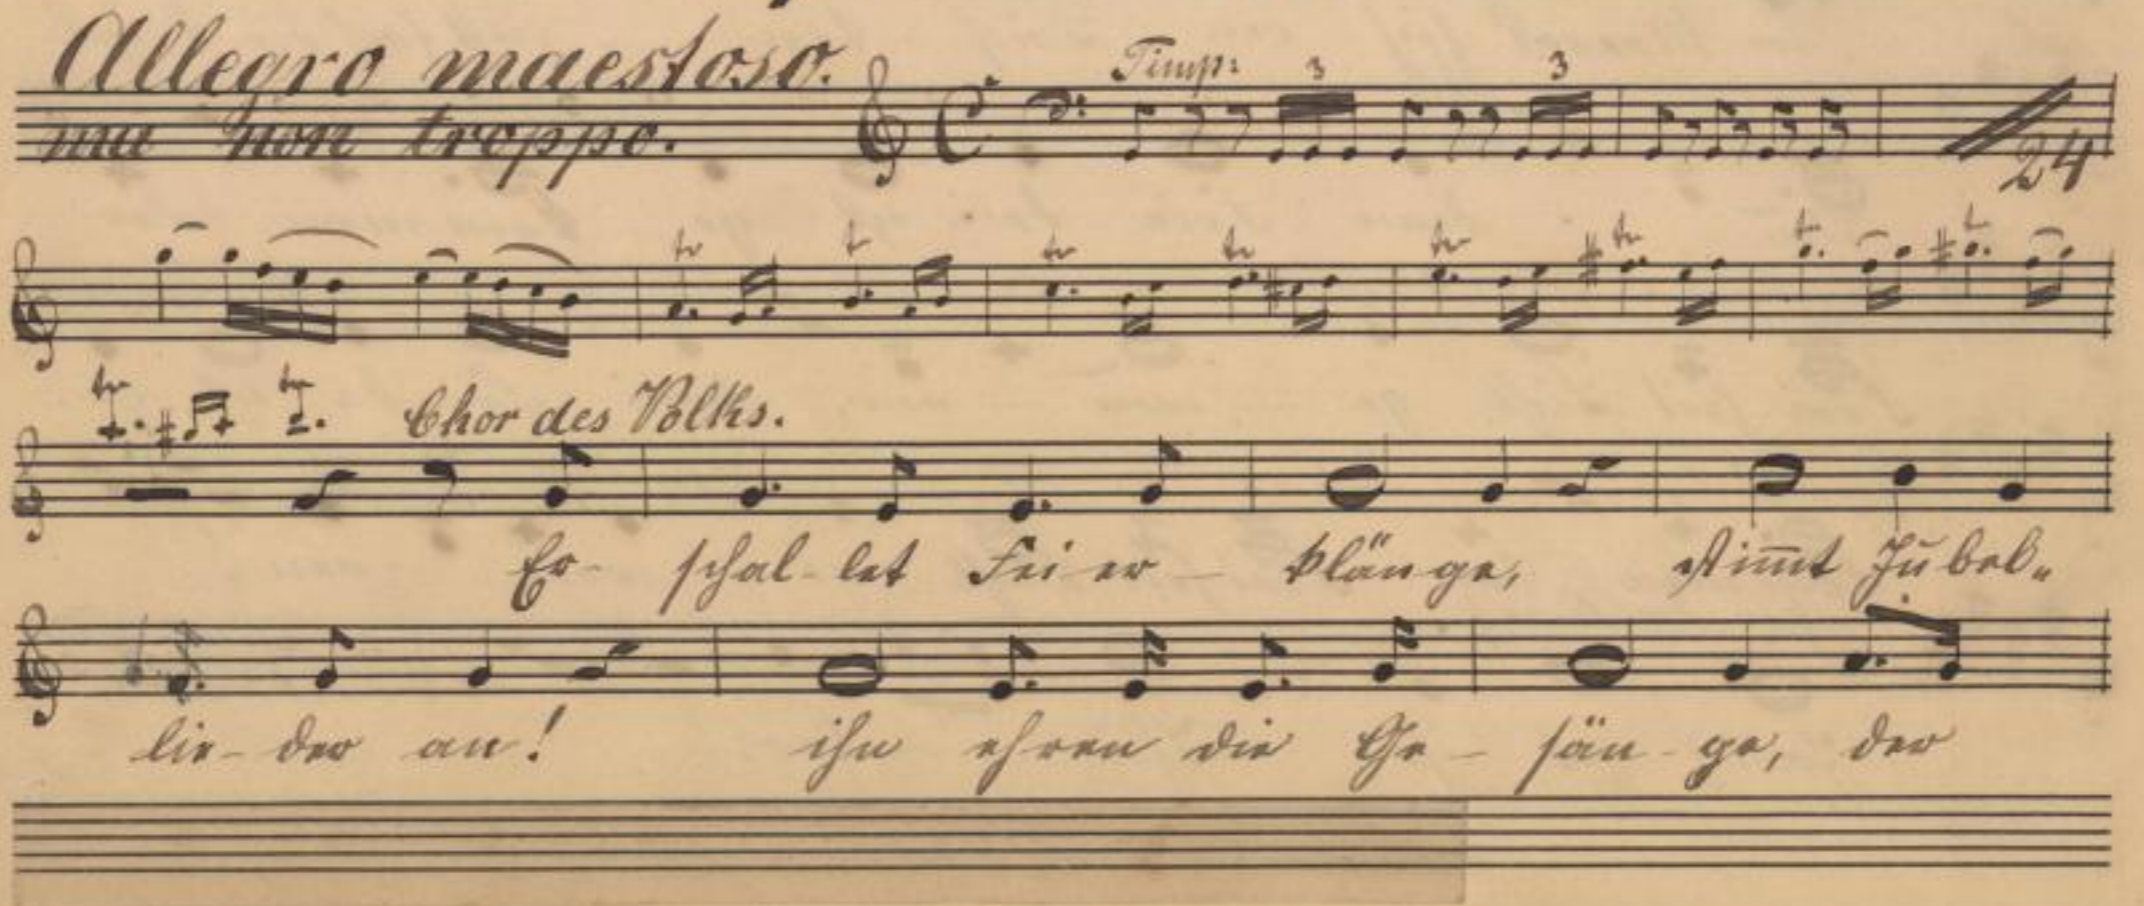 Allegro maestoso.
ma non troppo.
Timp: 3 3
24
tr tr tr tr tr tr tr tr
tr tr
Chor des Volks.
Er- schal-let Feier- klänge, Stim̅t Jubel„
lie-der an! ihn ehren die Ge-sän-ge, der